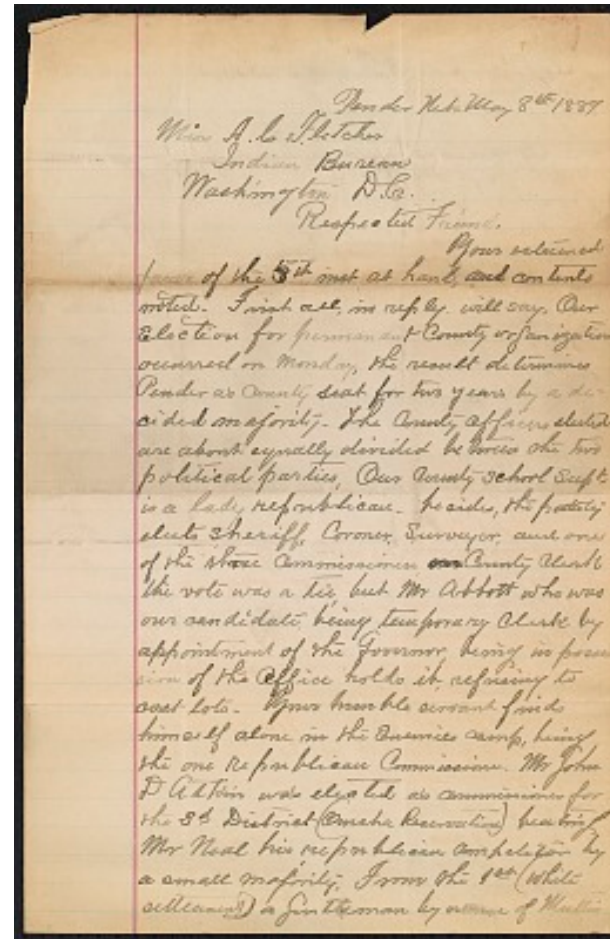 Pender Neb May 8th 1889
Miss A. C. Fletcher
Indian Bureau
Washington D.C.
Respected Friend.
Your esteemed
favor of the 5th inst at hand, and contents
noted. First all, in reply will say. Our
Election for permanent County organization
occurred on Monday, the result determines
Pender as County seat for two years by a de-
cided majority. The County officers elected
are about equally divided between the two
political parties, Our County School Supt
is a lady republican. besides, the party
elects Sheriff, Coroner, Surveyor, and one
of the three Commissioners County Clerk
the vote was a tie, but Mr Abbott who was
our candidate, being temporary Clerk by
appointment of the Governor being in posses
sion of the office holds it, refusing to
cast lots. Your humble servant finds
himself alone in the Enemies camp, being
the one republican Commissioner. Mr John
D Atkin was elected as commissioner for
the 3d District (Omaha Reservation) beating
Mr Neal his republican competitor by
a small majority. From the 1st (white
settlement) a Gentleman by name of